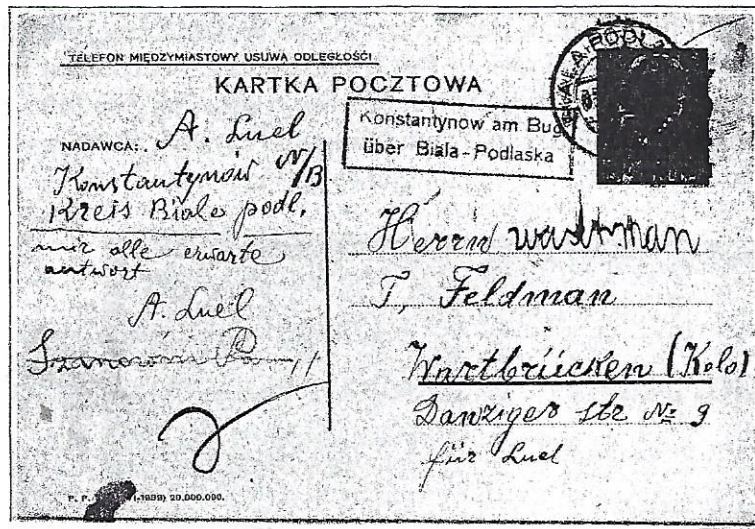 TELEFON MIĘDZYMIASTOWY USUWA ODLEGŁOŚĆ!
KARTKA POCZTOWA
BIAŁA PODL
Konstantynow am Bug
über Biala-Podlaska
NADAWCA: A. Luel
Konstantynów n/B
Kreis Biale podl.
mir alle erwarte
antwort
A. Luel
Szanowni
Herrn
T. Feldman
Wartbrücken (Kolo)
Danziger str № 9
für Luel
1939) 20.000.000.